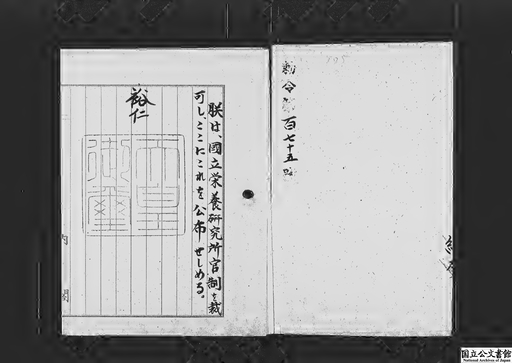 勅令第百七十五号
朕は、國立栄養研究所官制を裁
可し、ここにこれを公布せしめる。
裕仁
天皇
御璽
内閣
国立公文書館
National Archives of Japan